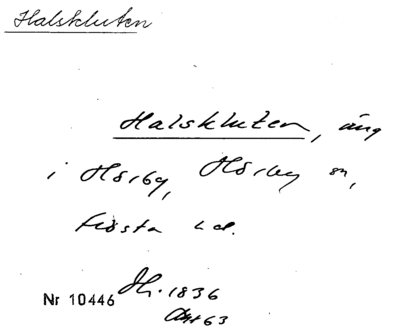 Halskluten
Halskluten, äng
i Hörby, Hörby sn,
Frosta hd.
Nr 10446 Jh. 1836
Akt 63